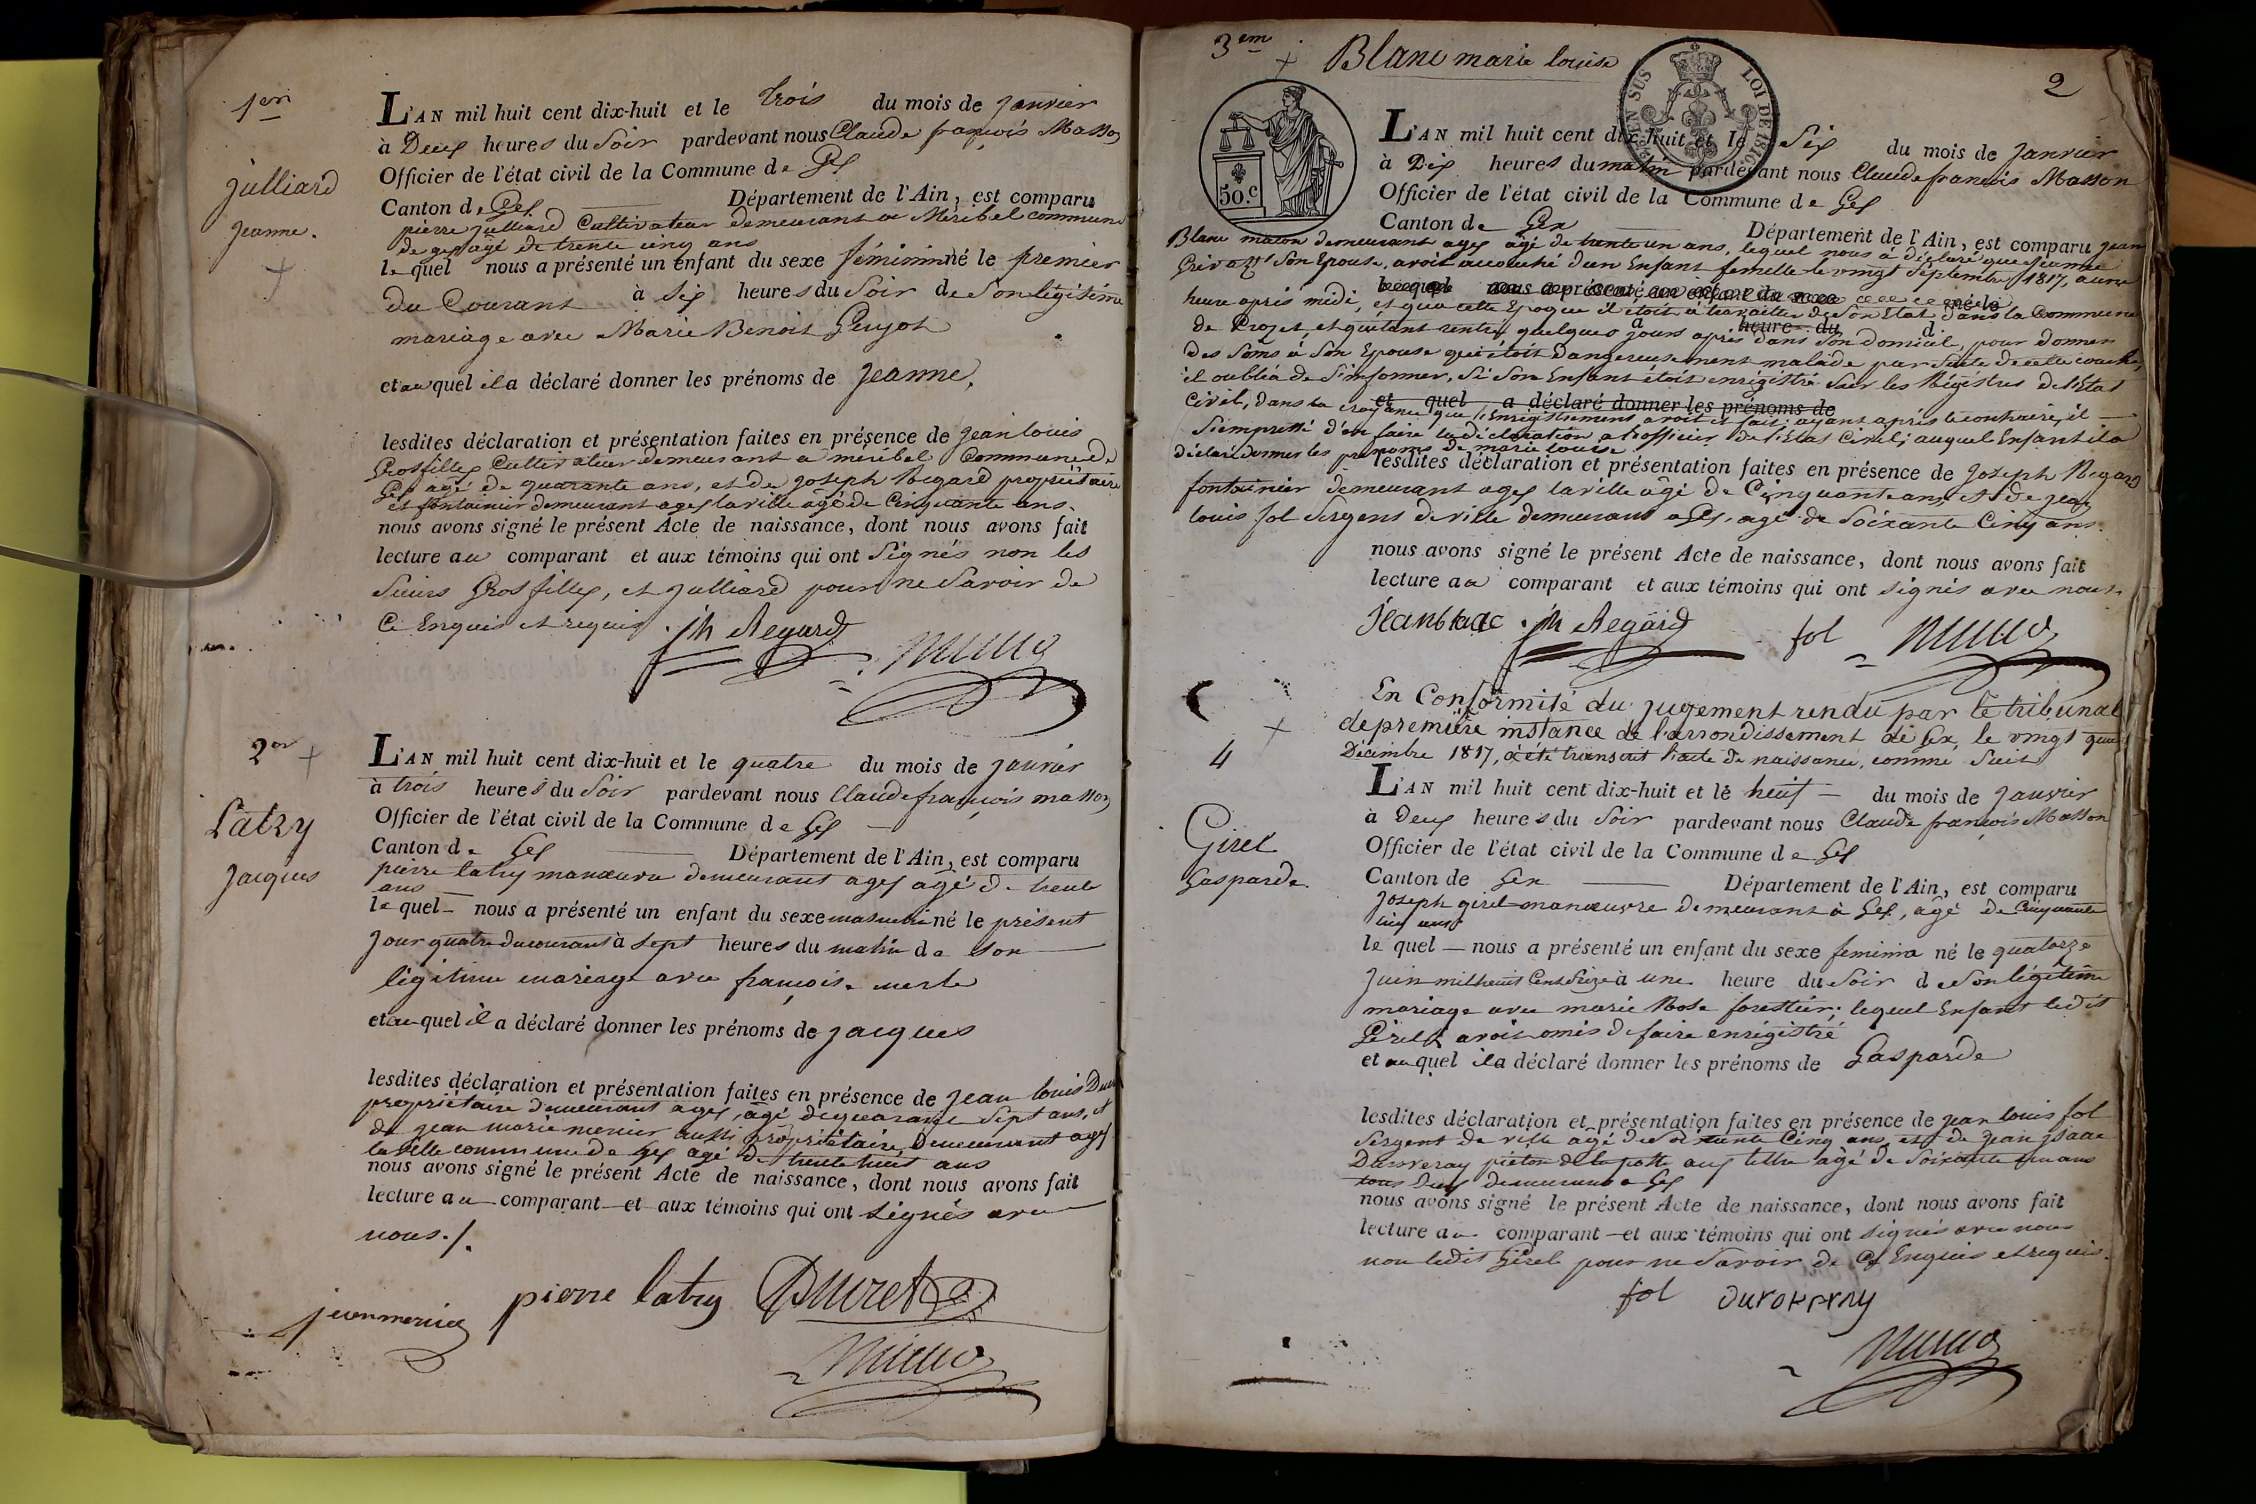 1er
Julliard
Jeanne.
L'AN mil huit cent dix-huit et le trois du mois de Janvier
à Deux heures du Soir pardevant nous Claude françois Masson
Officier de l'état civil de la Commune de Gex
Canton de Gex Département de l'Ain, est comparu
pierre Julliard Cultivateur demeurant a Meribel commune
de gex agé de trente cinq ans
lequel nous a présenté un enfant du sexe féminin né le premier
du Courant à Six heures du Soir de Son légitime
mariage avec Marie Benoit Guyot
et auquel il a déclaré donner les prénoms de Jeanne,
lesdites déclaration et présentation faites en présence de Jean louis
Grosfilley Cultivateur demeurant a méribel Commune de
Gex agé de quarante ans, et de Joseph Regard propriétaire
et fontainier demeurant a gex la ville agé de Cinquante ans.
nous avons signé le présent Acte de naissance, dont nous avons fait
lecture au comparant et aux témoins qui ont Signés non les
Sieurs Grosfilley, et Julliard pour ne Savoir de
Ce Enquis et requis
jh Regard
2er
Latry
Jacques
L'AN mil huit cent dix-huit et le quatre du mois de Janvier
à trois heures du Soir pardevant nous Claude françois masson
Officier de l'état civil de la Commune de Gex
Canton de Gex Département de l'Ain, est comparu
pierre latry manœuvre demeurant a gex âgé de trente
ans
lequel nous a présenté un enfant du sexe masculin né le présent
Jour quatre du courant à sept heures du matin de son
légitime mariage avec françoise merle
et auquel il a déclaré donner les prénoms de jacques
lesdites déclaration et présentation faites en présence de Jean louis
propriétaire demeurant a gex, âgé de quarante Sept ans, et
de jean marie mercier aussi propriétaire, demeurant a gex
la ville commune de gex agé de trente huit ans
nous avons signé le présent Acte de naissance, dont nous avons fait
lecture au comparant et aux témoins qui ont signés avec
nous./.
pierre latry Duret
3em Blanc marie louise 2
50.c
LOI DE 1816.
L'AN mil huit cent dix-huit et le Six du mois de Janvier
à Dix heures du matin pardevant nous Claude françois Masson
Officier de l'état civil de la Commune de Gex
Canton de Gex Département de l'Ain, est comparu Jean
Blanc macon demeurant a gex âgé de trente un ans, lequel nous à déclaré que Jeanne
Son Epouse, avoit accouché d'un Enfant femelle le vingt Septembre 1817, a une
lequel nous a présenté un enfant du sexe né le
heure après midi, et qu'a cette Epoque il étoit à travailler de Son Etat dans la Commune
à heure du d
de Crozet, et qu'étant rentré quelques jours après dans Son domicile, pour donner
des Soins à Son Epouse qui étoit Dangereusement malade par Suite de cette couche,
il oublia de S'informer, Si Son Enfant étoit enrégistré Sur les Régistres de l'Etat
et quel a déclaré donner les prénoms de
Civil, dans la croyance que l'Enrégistrement avoit été fait; ayant apris le contraire, il
S'empressé d'en faire la déclaration a l'officier de l'Etat Civil; auquel Enfant il a
déclaré donner les prénoms de marie louise
lesdites déclaration et présentation faites en présence de Joseph Regard
fontainier demeurant a gex la ville âgé de Cinquante ans, et de Jean
louis fol Sergent de ville demeurant a Gex, agé de Soixante Cinq ans.
nous avons signé le présent Acte de naissance, dont nous avons fait
lecture au comparant et aux témoins qui ont signés avec nous.
jh Regard fol
En Conformité du jugement rendu par le tribunal
de première instance de l'arrondissement de Gex, le vingt
Décembre 1817, à été transcrit l'acte de naissance, comme Suit
4
Girel
Gasparde.
L'AN mil huit cent dix-huit et le neuf du mois de Janvier
à Deux heures du Soir pardevant nous Claude françois Masson
Officier de l'état civil de la Commune de Gex
Canton de Gex Département de l'Ain, est comparu
Joseph girel manœuvre demeurant à Gex, âgé de Cinquante
cinq ans
lequel nous a présenté un enfant du sexe feminin né le quatorze
Juin mil huit Cent Seize à une heure du Soir de Son légitime
mariage avec marie Rose forestier; lequel Enfant ledit
Girel avoit omis de faire enrégistré
et auquel il a déclaré donner les prénoms de Gasparde
lesdites déclaration et présentation faites en présence de jean louis fol
Sergent de ville âgé de Soixante Cinq ans, et de Jean isaac
Duroveray piéton de la poste aux lettre agé de Soixante un ans
tous Deux demeurant a Gex
nous avons signé le présent Acte de naissance, dont nous avons fait
lecture au comparant et aux témoins qui ont signés avec nous
non ledit Girel pour ne Savoir de Ce Enquis et requis.
fol